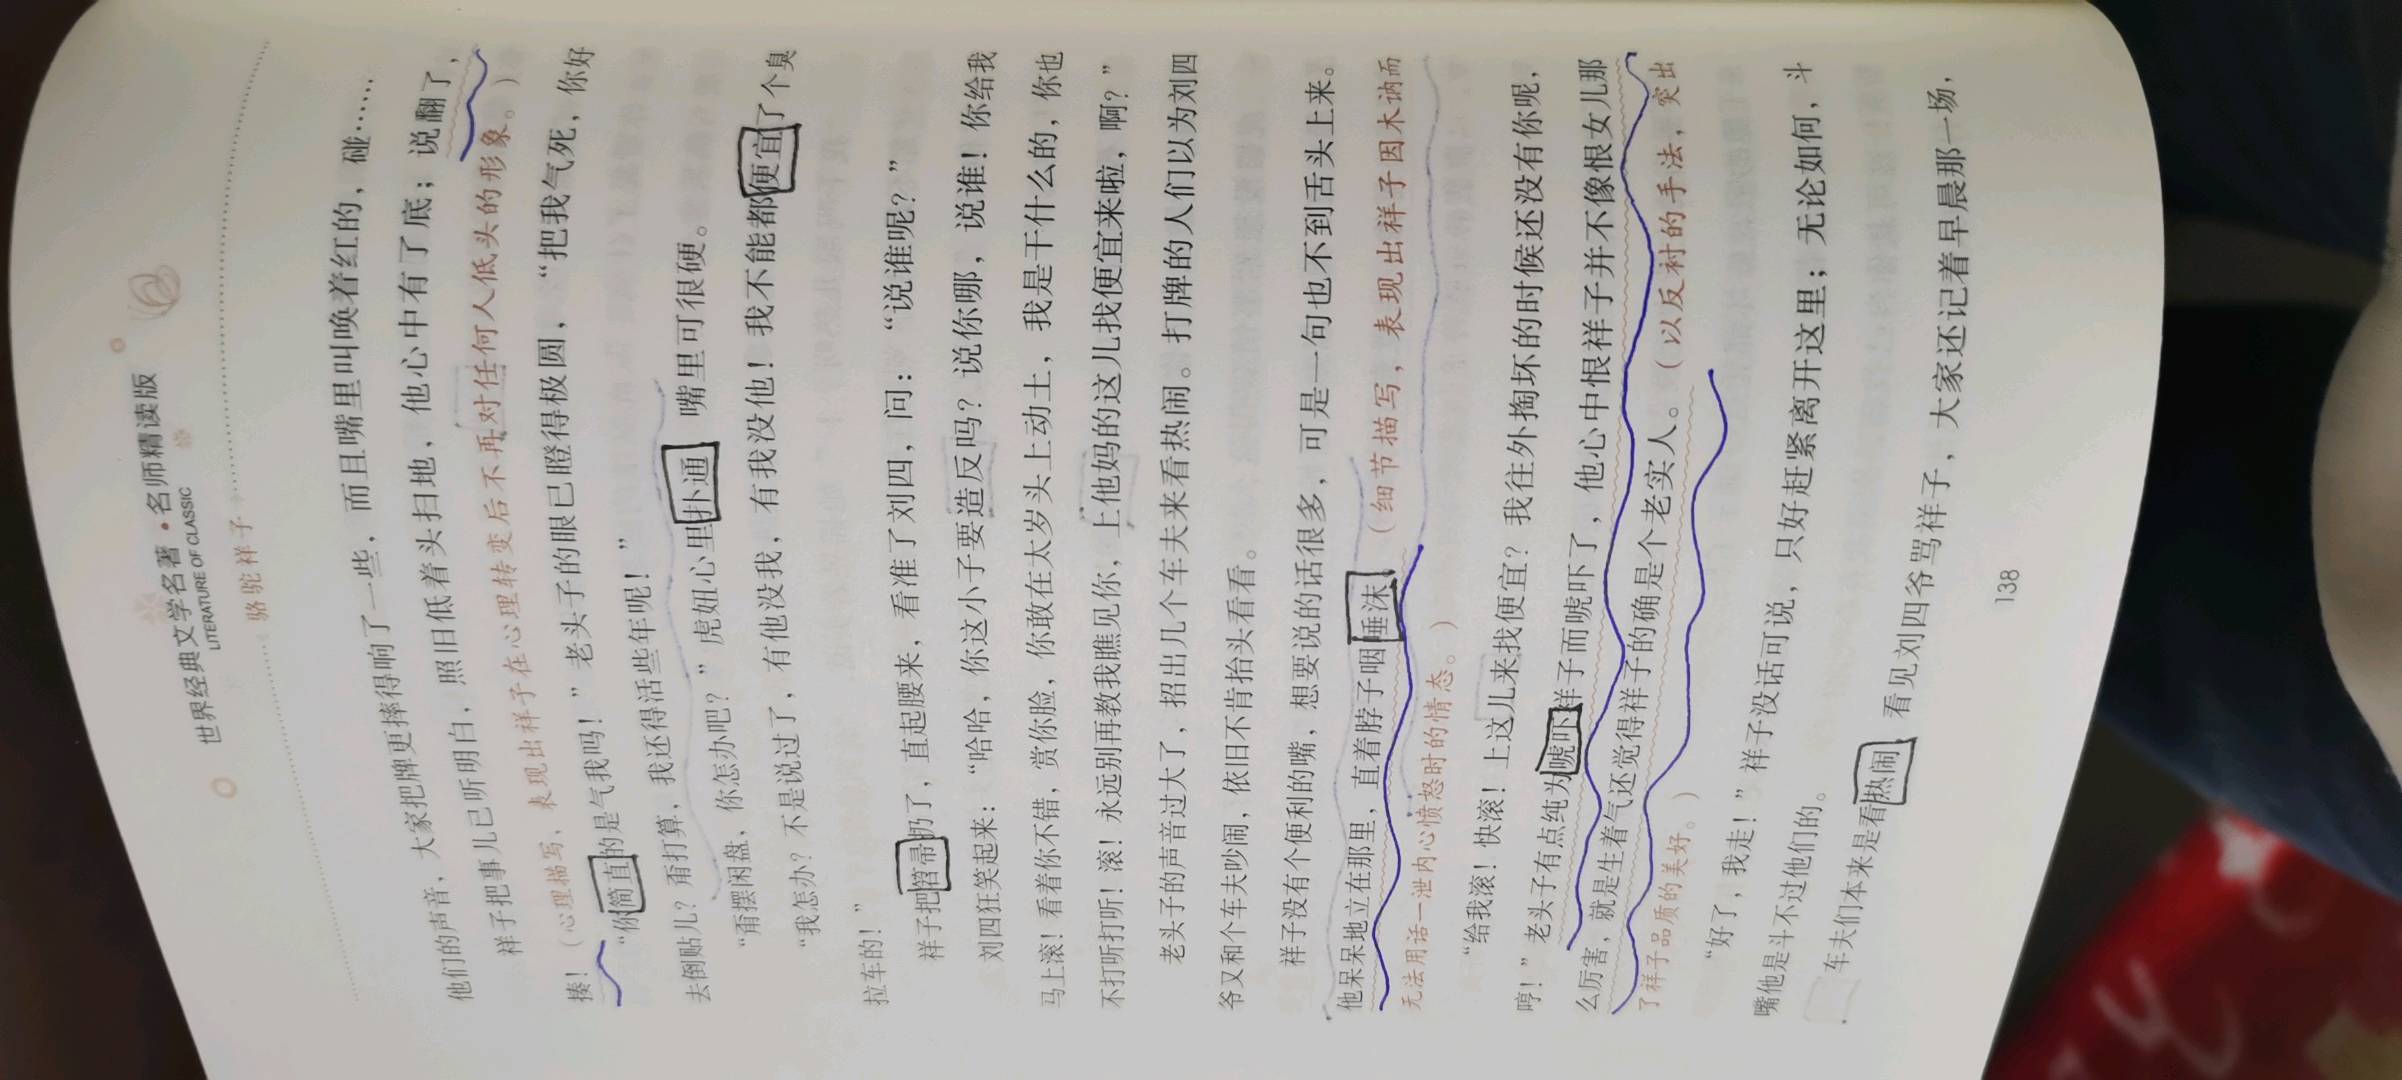 世界经典文学名著·名师精读版
LITERATURE OF CLASSIC
骆驼祥子
他们的声音，大家把牌更摔得响了一些，而且嘴里叫唤着红的，碰……
祥子把事儿已听明白，照旧低着头扫地，他心中有了底；说翻了，
揍！（心理描写，表现出祥子在心理转变后不再对任何人低头的形象。）
“你简直的是气我吗！”老头子的眼已瞪得极圆，“把我气死，你好
去倒贴儿？甭打算，我还得活些年呢！”
“甭摆闲盘，你怎办吧？”虎妞心里扑通，嘴里可很硬。
“我怎办？不是说过了，有他没我，有我没他！我不能都便宜了个臭
拉车的！”
祥子把笤帚扔了，直起腰来，看准了刘四，问：“说谁呢？”
刘四狂笑起来：“哈哈，你这小子要造反吗？说你哪，说谁！你给我
马上滚！看着你不错，赏你脸，你敢在太岁头上动土，我是干什么的，你也
不打听打听！滚！永远别再教我瞧见你，上他妈的这儿找便宜来啦，啊？”
老头子的声音过大了，招出几个车夫来看热闹。打牌的人们以为刘四
爷又和个车夫吵闹，依旧不肯抬头看看。
祥子没有个便利的嘴，想要说的话很多，可是一句也不到舌头上来。
他呆呆地立在那里，直着脖子咽唾沫。（细节描写，表现出祥子因木讷而
无法用话一泄内心愤怒时的情态。）
“给我滚！快滚！上这儿来找便宜？我往外掏坏的时候还没有你呢，
哼！”老头子有点纯为唬吓祥子而唬吓了，他心中恨祥子并不像恨女儿那
么厉害，就是生着气还觉得祥子的确是个老实人。（以反衬的手法，突出
了祥子品质的美好。）
“好了，我走！”祥子没话可说，只好赶紧离开这里；无论如何，斗
嘴他是斗不过他们的。
车夫们本来是看热闹，看见刘四爷骂祥子，大家还记着早晨那一场，
138